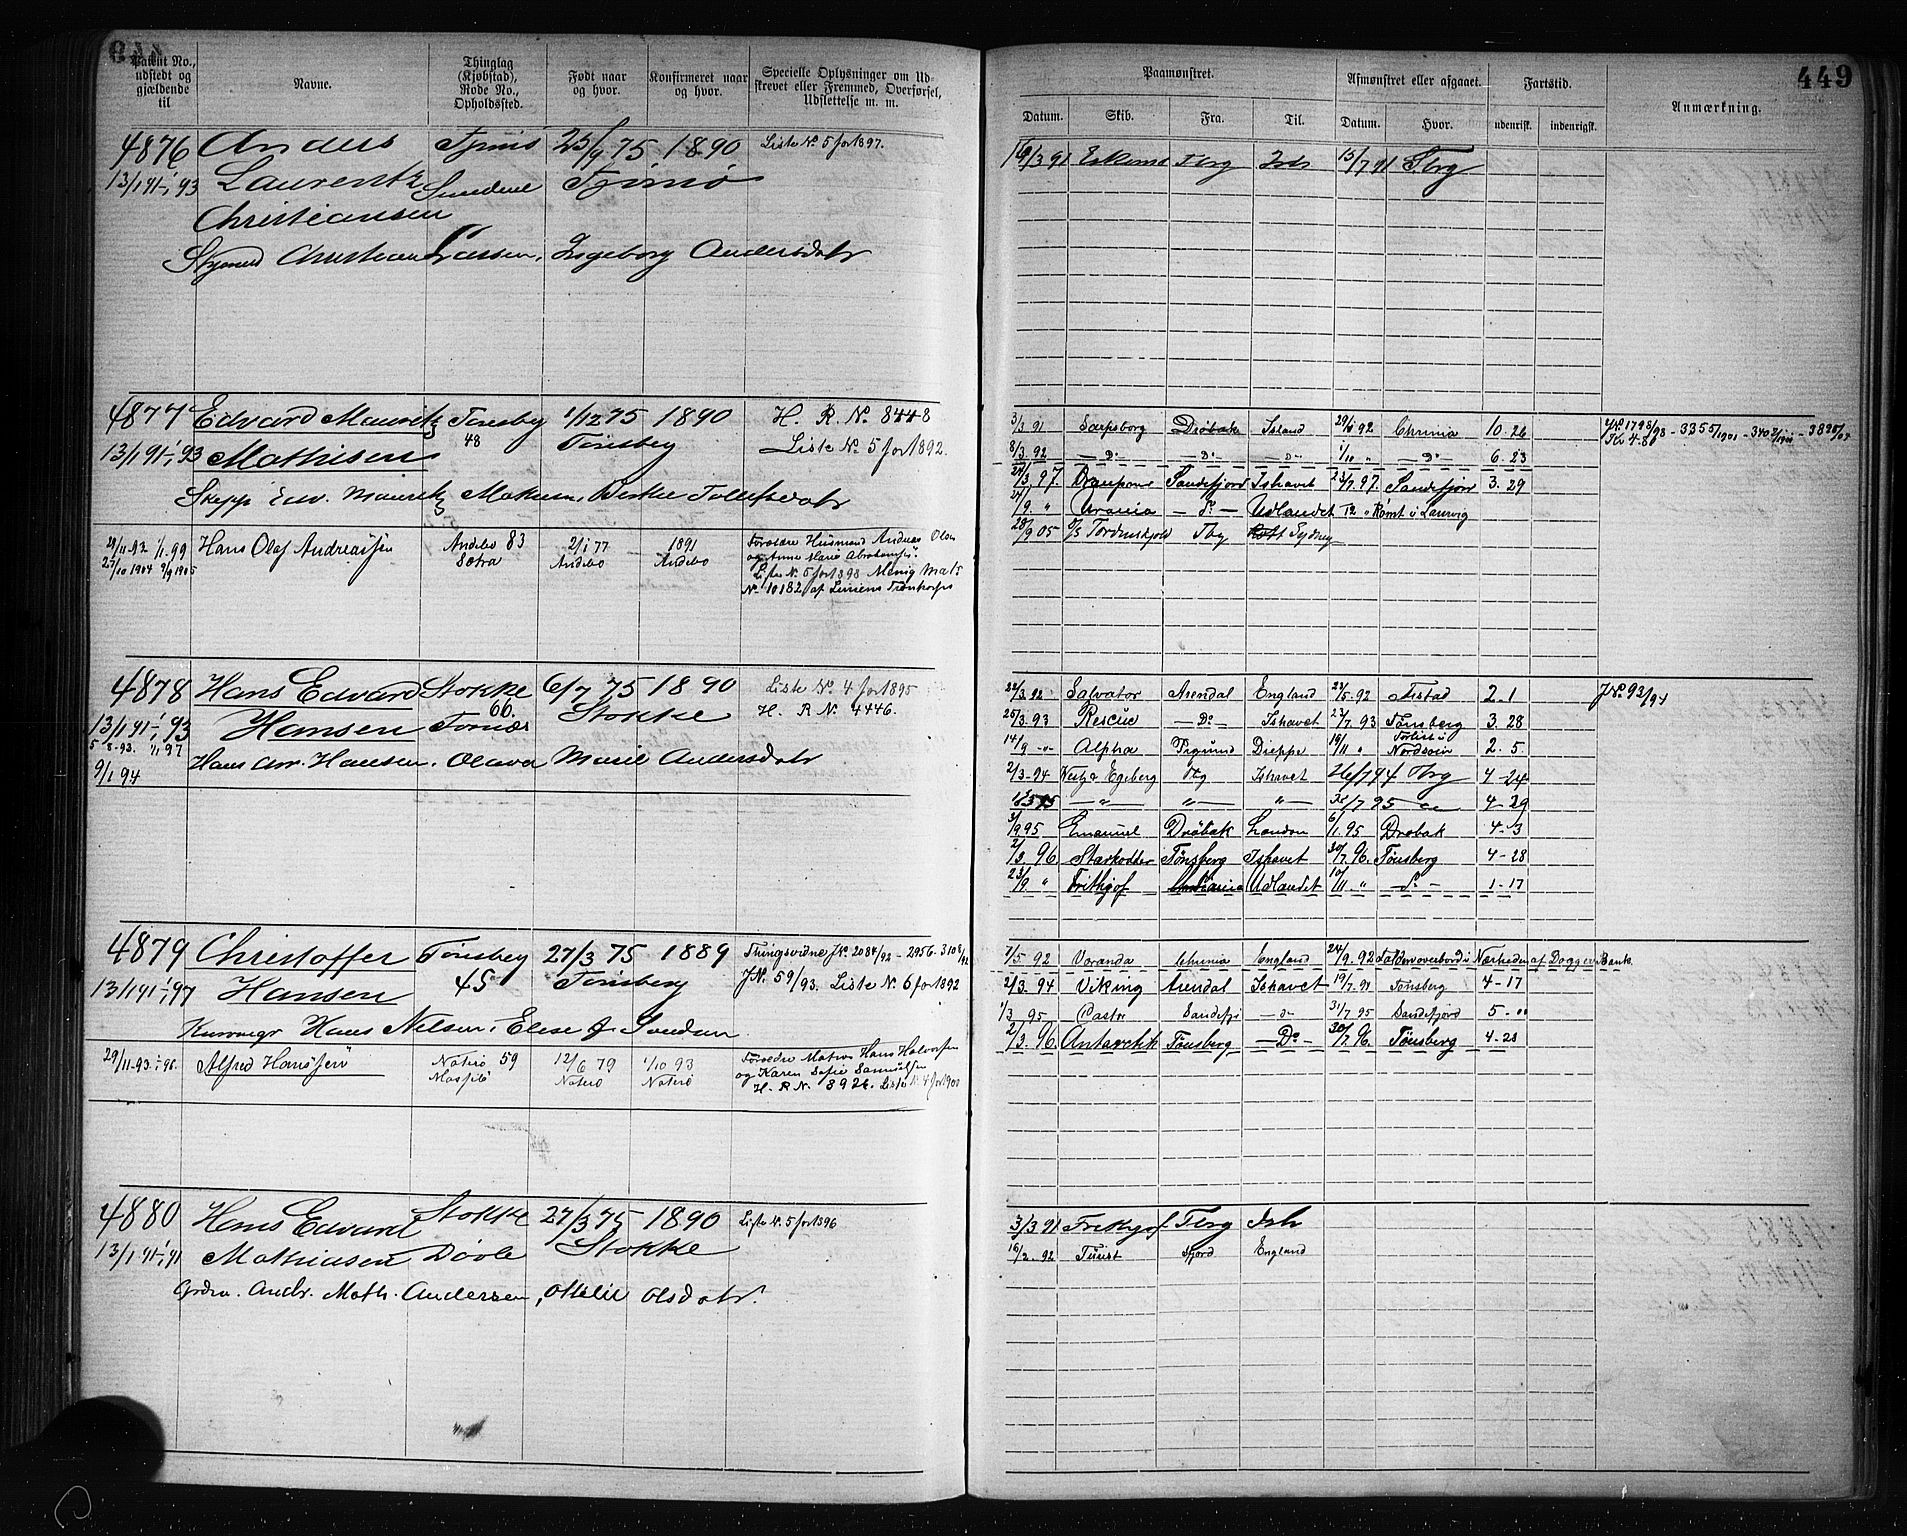 449
Patent No., udstedt og gjældende til
Navne.
Thinglag (Kjøbstad), Rode No., Opholdssted.
Født naar og hvor.
Konfirmeret naar og hvor.
Specielle Oplysninger om Udskrevet eller Fremmed, Overførsel, Udslettelse m. m.
Paamønstret.
Afmønstret eller afgaaet.
Fartstid.
Anmærkning.
Datum. Skib. Fra. Til. Datum. Hvor. udenrigsk. indenrigsk.
4876 Anders 75 1890 Liste No 5 for 1897.
13/1 91-1/1 93 Laurentz Tjømø
Christiansen
Christian Larssen, Ingeborg Andersdatr
Tbrg Ish 15/7 91 Tbrg
4877 Edvard Mauritz Tønsberg 1/12 75 1890 H. R. No. 8448
13/1 91-1/1 93 Mathisen 48 Tønsberg Liste No. 5 for 1892.
Edv. Mauritz
3/3 91 Sarpsborg Drøbak Island 92 Chrnia 10-26
8/3 92 -Do- -Do- -Do- -Do- 6. 23
/3 97. Sandefjord Ishavet 23/7 97. Sandefjord 3. 29
/9 " Urania -Do- Udlandet Rømt i Laurvig
28/9 05 Tordenskjold Tbg Sydney
29/11-93 1/1 99 Hans Olaf Andreassen Andebo 83 2/1 77 1891 Forældre Husmand Andreas Olsen
27/10 1904 9/9 1905 Andebo Andebo og Anne Marie
Liste No. 5 for 1898
No. 10182 af Liniens
4878 Hans Edvard Stokke 6/7 75 1890 Liste No. 4 for 1895
13/1 91-1/1 93 Hansen 66. Stokke H. R. No. 4446.
5-8-93. 1/1 97
9/1 94 Hans Arr. Hansen, Olava Marie Andersdatr
22/3 92 Salvator Arendal England 22/5. 92 2. 1 J No. 93/94
25/3.93 Rescue -Do- Ishavet 23/7 93 Tønsberg 3. 28
14/9 -"- Alpha Dieppe 19/11 " Forlist i Nordsøen 2. 5.
2/3-94 Egeberg Tbg Ishavet 26/7 94 Tbrg 4-24
-"- "- "- /7 95 4-29
/9 95 Emanuel Drøbak London 6/1. 95 Drøbak 4-3
2/3. 96 Starkodder Tønsberg Ishavet 30/7. 96. Tønsberg 4-28
23/9. " Frithjof Udlandet 10/11. " -Do- 1-17
4879 Christoffer Tønsberg 27/3 75 1889 Thingsvidne J No. 2084/92 - 2956. 3108/92
13/1 91-1/1 97 Hansen 45 Tønsberg J No. 59/93. Liste No. 6 for 1892
Hans Nilsen, Elise
7/5 92 Voranda Chrnia England 24/9. 92 Faldt overbord i Nærheden af Doggers Bank.
2/3. 94 Viking Arendal Ishavet 19/7. 94 Tønsberg 4-17
1/3 95 Castor Sandefj -Do- 31/7 95 Sandefjord 5-"
2/3. 96 Antarctik Tønsberg -Do- 30/7. 96. Tønsberg 4-28
29/11-93-1/1-96. Alfred Hansen Nøtterø 59 12/6 79 1/10 93 Forældre Matros Hans Halvorsen
Nøtterø Nøtterø og Karen Sofie
H. R. No. 8926. Liste No. 4 for 1900
4880 Hans Edvard Stokke 27/3 75 1890 Liste No. 5 for 1896
13/1 91-1/1 91 Mathiesen Døvle Stokke
Grdm. Andr. Math. Andersen, Ottilie Olsdatr.
3/3 91 Frithjof Tbrg Ish
/3. 92 Turist England